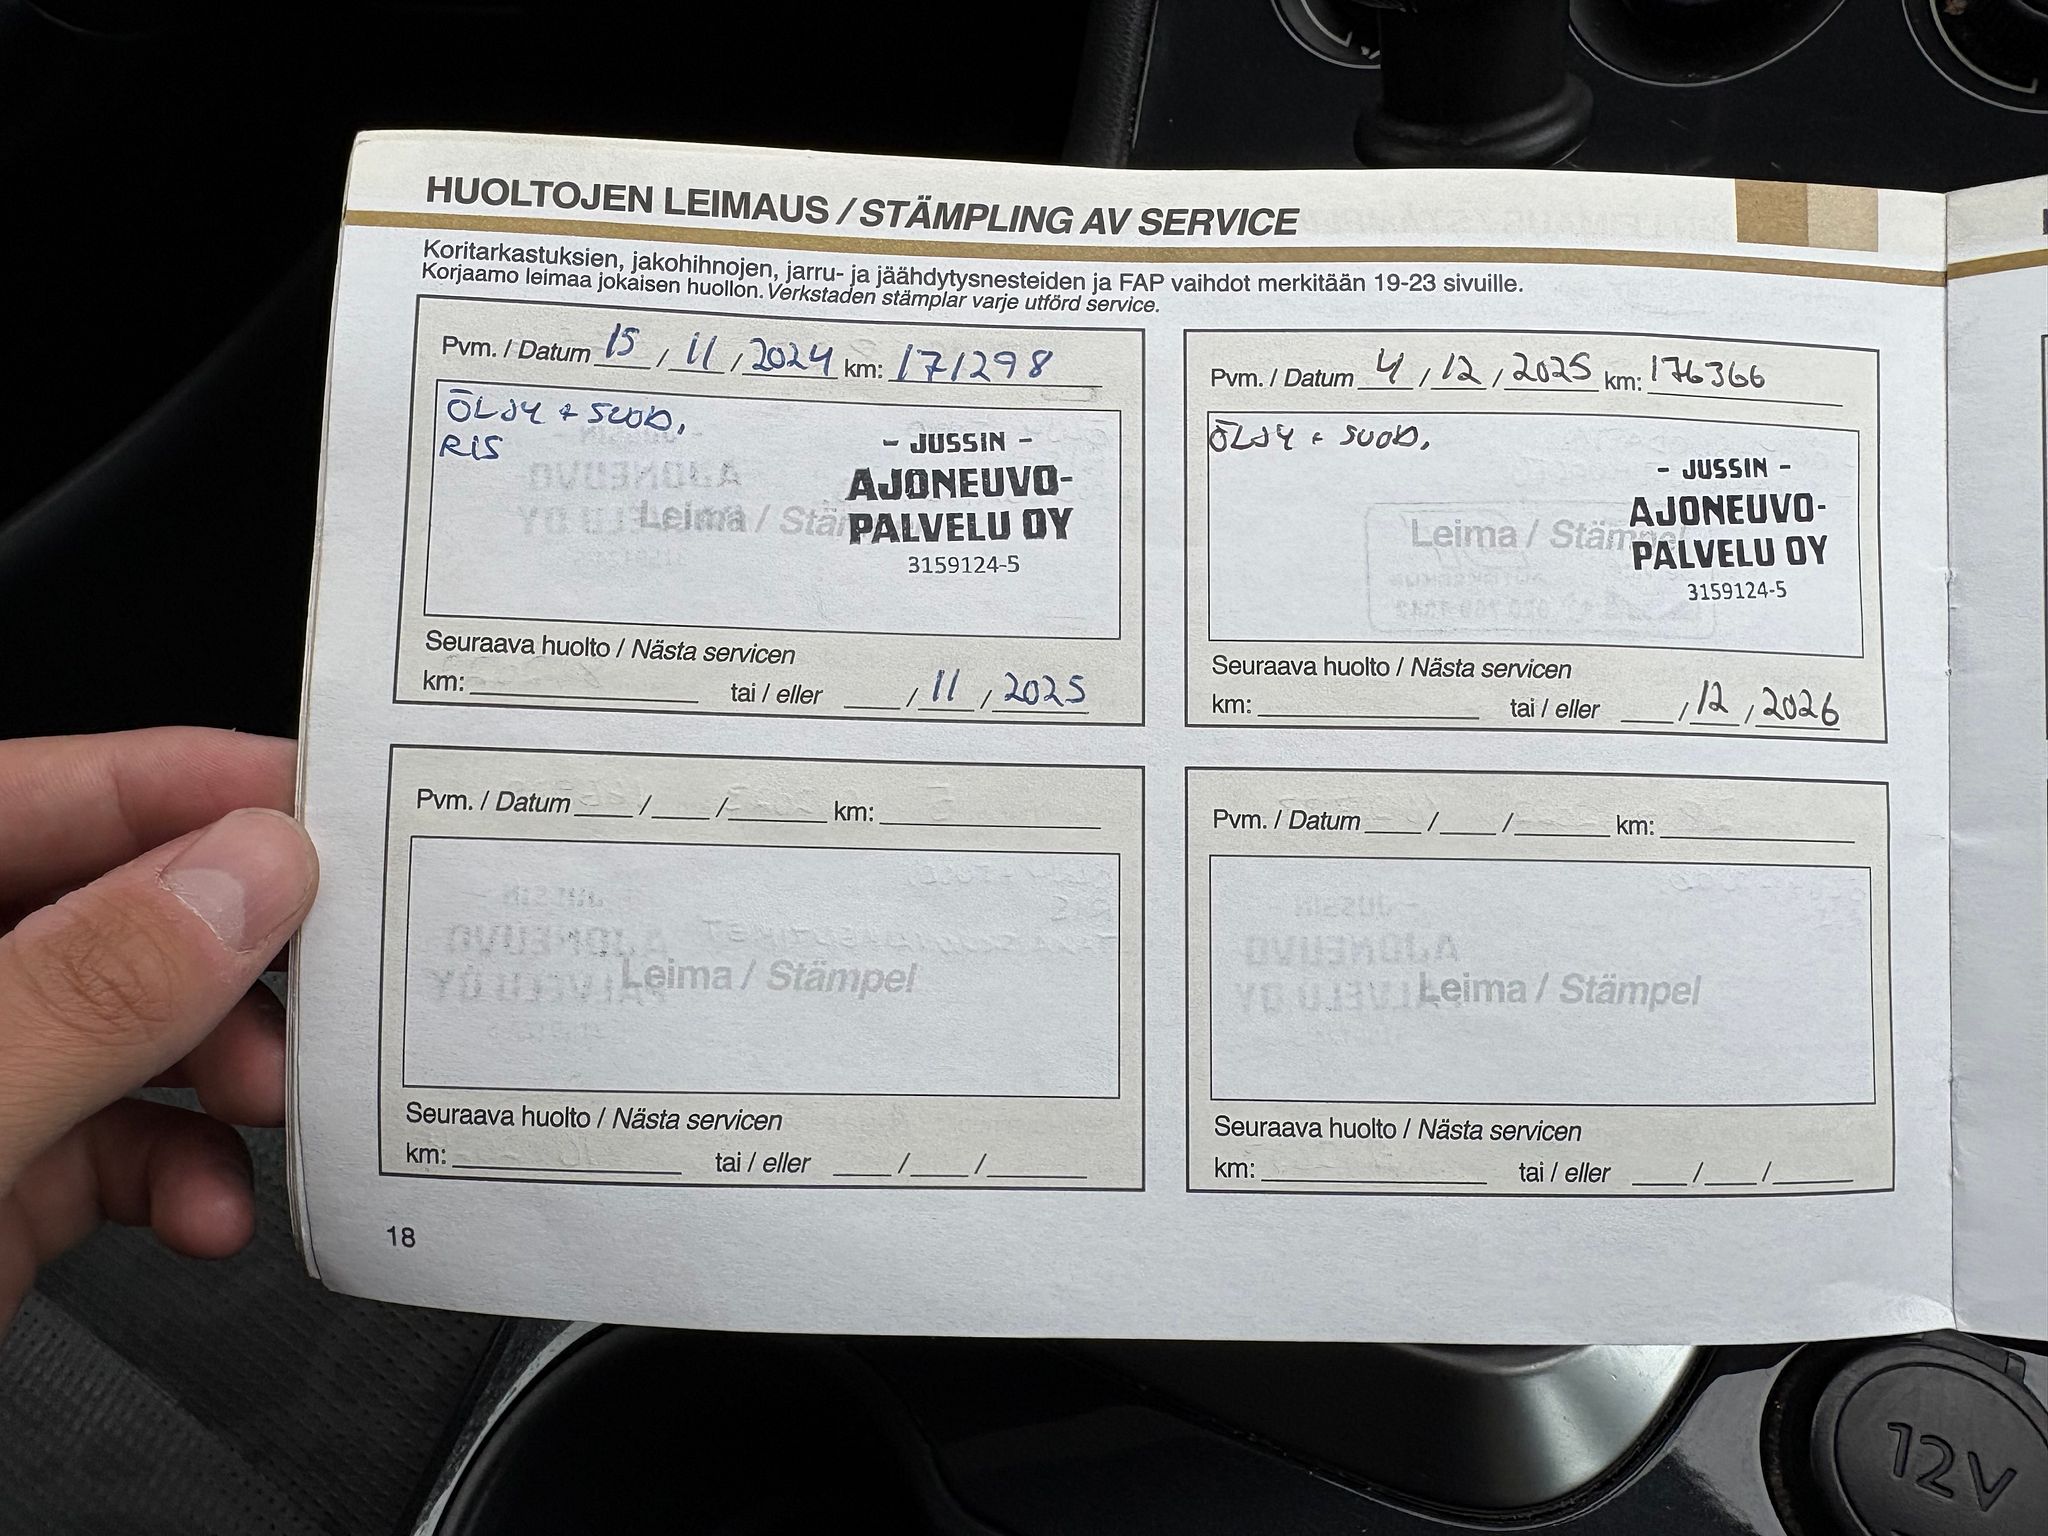 HUOLTOJEN LEIMAUS / STÄMPLING AV SERVICE
Koritarkastuksien, jakohihnojen, jarru- ja jäähdytysnesteiden ja FAP vaihdot merkitään 19-23 sivuille.
Korjaamo leimaa jokaisen huollon. Verkstaden stämplar varje utförd service.
Pvm. / Datum 15 / 11 / 2024 km: 171298
ÖLJY + SUOD,
RIS
Leima / Stäm
- JUSSIN -
AJONEUVO-
PALVELU OY
3159124-5
Seuraava huolto / Nästa servicen
km: tai / eller / 11 / 2025
Pvm. / Datum 4 / 12 / 2025 km: 176366
ÖLJY + SUOD,
Leima / Stämpel
- JUSSIN -
AJONEUVO-
PALVELU OY
3159124-5
Seuraava huolto / Nästa servicen
km: tai / eller / 12 / 2026
Pvm. / Datum / / km:
Leima / Stämpel
Seuraava huolto / Nästa servicen
km: tai / eller / /
Pvm. / Datum / / km:
Leima / Stämpel
Seuraava huolto / Nästa servicen
km: tai / eller / /
18
12V